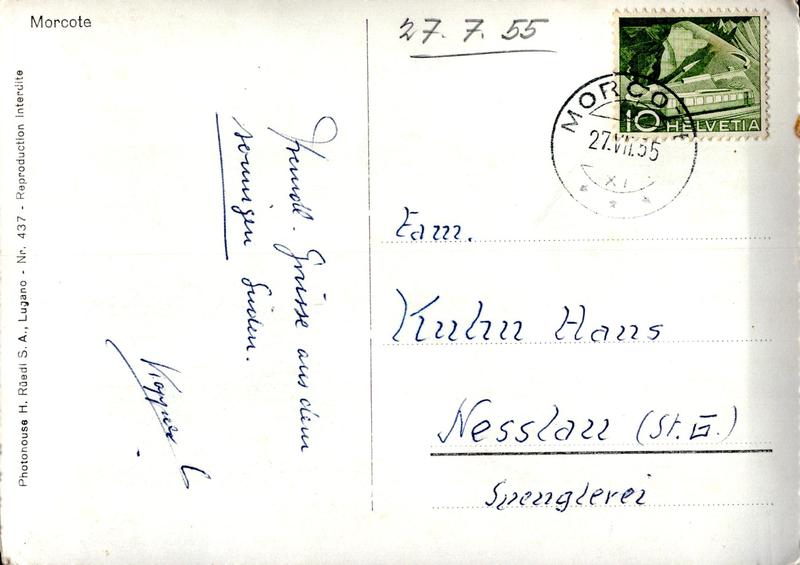 Morcote
27. 7. 55
10 HELVETIA
MORCOTE
27.VII.55
XI
Freundl. Grüsse aus dem
sonnigen Süden.
Fam.
Kuhn Hans
Nesslau (St. G.)
Spenglerei
Photohouse H. Rüedi S. A., Lugano - Nr. 437 - Reproduction Interdite